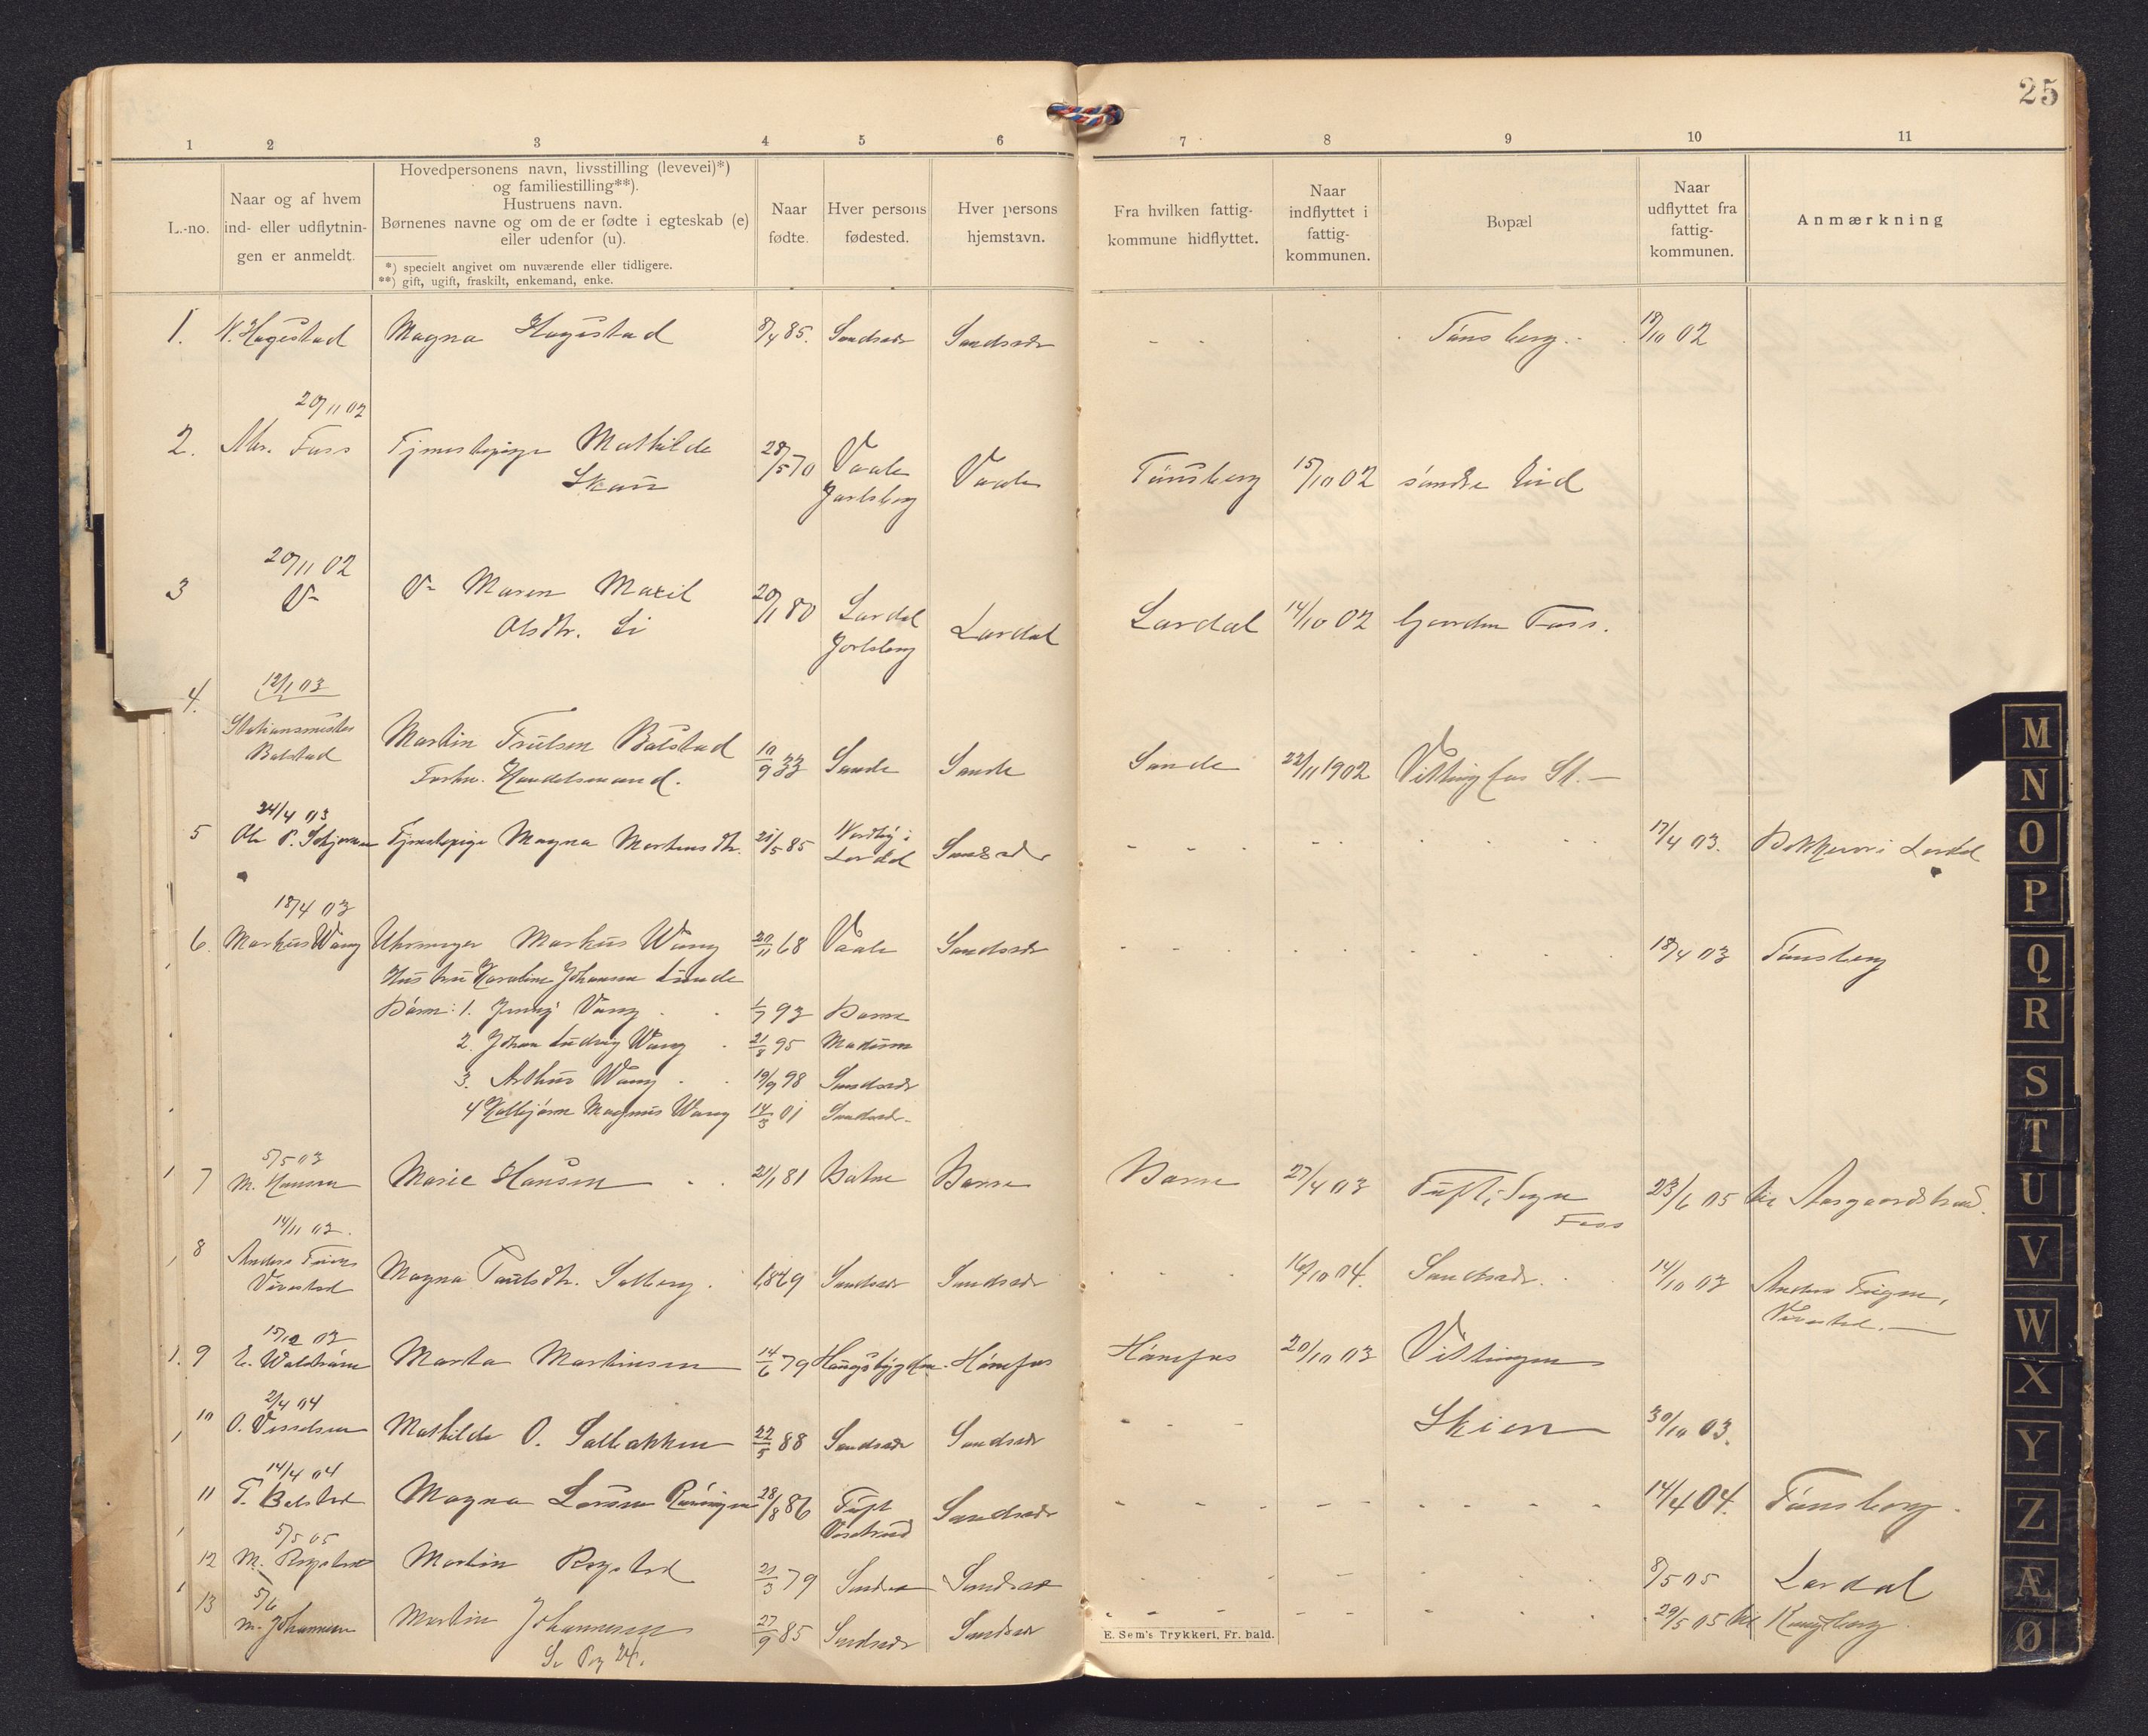 25
1 2 3 4 5 6 7 8 9 10 11
L.-no.
Naar og af hvem
ind- eller udflytnin-
gen er anmeldt.
Hovedpersonens navn, livsstilling (levevei)*)
og familiestilling**).
Hustruens navn.
Børnenes navne og om de er fødte i egteskab (e)
eller udenfor (u).
*) specielt angivet om nuværende eller tidligere.
**) gift, ugift, fraskilt, enkemand, enke.
Naar
fødte.
Hver persons
fødested.
Hver persons
hjemstavn.
Fra hvilken fattig-
kommune hidflyttet.
Naar
indflyttet i
fattig-
kommunen.
Bopæl
Naar
udflyttet fra
fattig-
kommunen.
Anmærkning
1. N. Hagestad Magna Hagestad 8/4 85. Sandsvær Sandsvær Tønsberg 18/10 02
20/11 02
2. Foss Tjenestepige Mathilde 28/5 70 Vaale Vaale Tønsberg 15/10 02 søndre
Skau Jarlsberg
20/11 02
3 Do Do Maren 20/11 80 Lardal Lardal Lardal 14/10 02 Gaarden Foss.
Olsdtr. Li Jarlsberg
4. 12/1 03
Stationsmester
Balstad Martin Trulsen Balstad 10/9 33 Sande Sande Sande 22/11 1902 Vittingfos St.
Forhv. Handelsmand.
24/4 03
5 Ole P. Tjenestepige Magna Martinsdtr. 21/5 85 Lardal Sandsvær 17/4 03. i Lardal
18/4 03
6. Markus Wang Markus Wang 20/11 68 Vaale Sandsvær 18/4 03 Tønsberg
Hustru Karoline Johansen Lunde
Børn: 1. Jenny Wang 1/7 93 Borre
2. Johan Ludvig Wang 21/8 95 Modum
3. Arthur Wang 19/9 98 Sandsvær
4 Magnus Wang 14/3 01 Sandsvær
5/5 03
7 M. Hansen Marie Hansen 21/1 81 Borre Borre Borre 27/4 03 Tuft, 23/6 05 til Aasgaardstrand.
Foss
14/11 03.
8 Anders
Virestad Magna Paulsdtr. Solberg 1869 Sandsvær Sandsvær 16/10 04. Sandsvær 14/10 03 Anders
15/12 03
9 Marta Martinsen 14/6 79 Haugsbygden Hønefos Hønefos 20/10 03 Vittingen
2/4 04
10 O. Mathilde O. Solbakken 22/5 88 Sandsvær Sandsvær Skien 30/10 03.
14/4 04
11 T. Balstad Magna Larsen 28/8 86 Tuft Sandsvær 14/4 04. Tønsberg
5/5 05
12 M. Martin 21/3 79 Sandsvær Sandsvær 8/5 05 Lardal
5/6
13 M. Johannesen Martin Johannesen 27/9 85 Sandsvær Sandsvær 29/5 05 til Kongsberg
Se Pag 24.
E. Sem's Trykkeri, Fr.hald.
M
N
O
P
Q
R
S
T
U
V
W
X
Y
Z
Æ
Ø